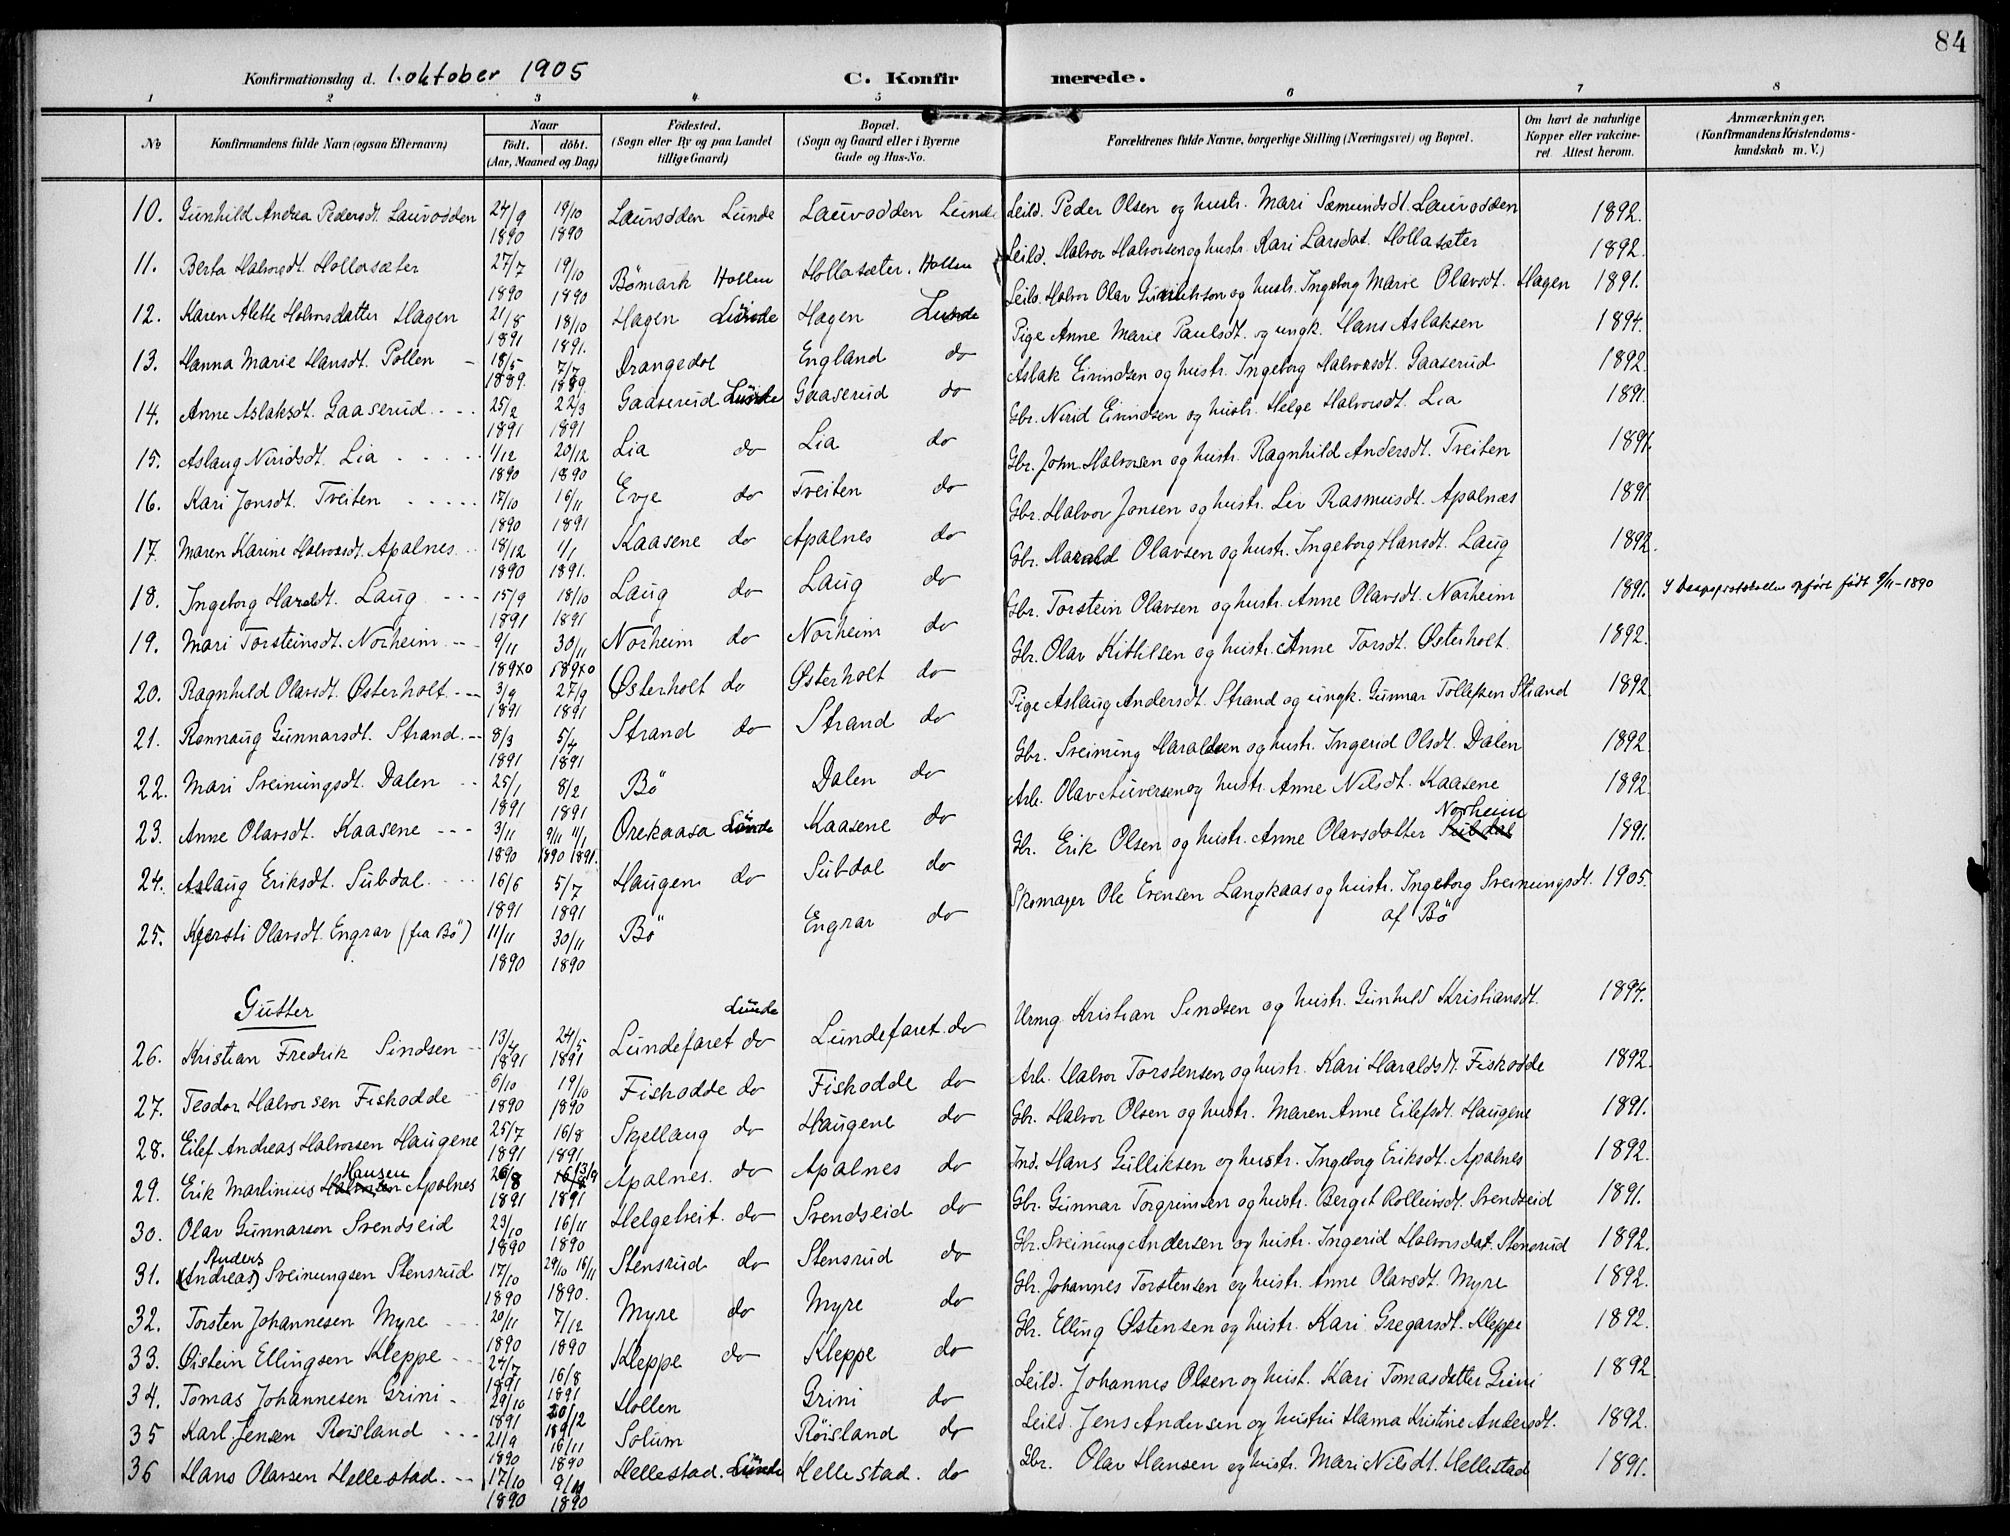 84
Konfirmationsdag d. 1. oktober 1905 C. Konfirmerede.
1 2 3 4 5 6 7 8
No
Konfirmandens fulde Navn (ogsaa Efternavn)
Naar
født. døbt.
(Aar, Maaned og Dag)
Fødested.
(Sogn eller By og paa Landet
tillige Gaard)
Bopæl.
(Sogn og Gaard eller i Byerne
Gade og Hus-No.
Forældrenes fulde Navne, borgerlige Stilling (Næringsvei) og Bopæl.
Om havt de naturlige
Kopper eller vakcine-
ret. Attest herom.
Anmærkninger.
(Konfirmandens Kristendoms-
kundskab m. V.)
10. Gunhild Andrea Pedersdt. Lauvodden 24/9 1890 19/10 1890 Lauvodden Lunde Lauvodden Lunde Leild. Peder Olsen og hustr. Mari Sæmundsdt. Lauvodden 1892.
11. Berta Halvorsdt. Hollasæter 27/7 1890 19/10 1890 Bømark Hollen Hollasæter. Hollen Leild. Halvor Halvorsen og hustr. Kari Larsdat. Hollasæter 1892.
12. Karen Alette Halvorsdatter Hagen 21/8 1891 18/10 1891. Hagen Lunde Hagen Lunde Leild. Halvor Olav Gunlikson og hustr. Ingeborg Marie Olavsdt. Hagen 1891.
13. Hanna Marie Hansdt. Pollen 18/5 1889. 7/7 1889 Drangedal England do Pige Anne Marie Paulsdt. og ungk. Hans Aslaksen 1894.
14. Anne Aslaksdt. Gaaserud 25/2 1891 22/3 1891 Gaaserud Lunde Gaaserud do Aslak Eivindsen og hustr. Ingeborg Halvorsdt. Gaaserud 1892
15. Aslaug Neridsdt. Lia 1/12 1890 20/12 1890 Lia do Lia do Gbr. Nerid Eivindsen og hustr. Helge Halvorsdt. Lia 1891.
16. Kari Jonsdt. Treiten 17/10 1890 16/11 1891 Evje do Treiten do Gbr. John Halvorsen og hustr. Ragnhild Andersdt. Treiten 1891.
17. Maren Karine Halvorsdt. Apalnes 18/12 1890 1/1 1891. Kaasene do Apalnes do Gbr. Halvor Jonsen og hustr. Liv Rasmusdt. Apalnæs 1891
18. Ingeborg Haraldt. Laug 15/9 1891 18/10 1891 Laug do Laug do Gbr. Harald Olavsen og hustr. Ingeborg Hansdt. Laug 1892.
19. Mari Torsteinsdt. Norheim 9/11 18970 30/11 18970 Norheim do Norheim do Gbr. Torstein Olavsen og hustr. Anne Olavsdt. Norheim 1891. I Daapsprotokollen opført født 9/11-1890
20. Ragnhild Olavsdt. Østerholt 3/9 1891 27/9 1891 Østerholt do Østerholt do Gbr. Olav Kittilsen og hustr. Anne Torsdt. Østerholt 1892.
21. Rønnaug Gunnarsdt. Strand 8/3 1891 5/4 1891 Strand do Strand do Pige Aslaug Andersdt. Strand og ungk. Gunnar Tollefsen Strand 1892.
22. Mari Sveinungsdt. Dalen 25/1 1891 8/2 1891 Bø Dalen do Gbr. Sveinung Haraldsen og hustr. Ingerid Olsdt. Dalen 1892
23. Anne Olavsdt. Kaasene 3/11 1890 9/11 1890 11/1 1891. Orekaasa Lunde Kaasene do Arb. Olav Auversen og hustr. Anne Nilsdt. Kaasene 1892.
24. Aslaug Eriksdt. Subdal 16/6 1891 5/7 1891 Haugen do Subdal do Gbr. Erik Olsen og hustr. Anne Olavsdatter Subdal Norheim 1891.
25. Kjersti Olavsdt. Engrav (fra Bø) 11/11 1890 30/11 1890 Bø Engrav do Skomager Ole Evensen Langkaas og hustr. Ingeborg Sveinungsdt. 1905.
af Bø
Gutter
26. Kristian Fredrik Sindsen 13/4 1891 24/5 1891 Lundefaret do Lunde Lundefaret do Urmg. Kristian Sindsen og hustr. Gunhild Kristiansdt. 1894.
27. Teodor Halvorsen Fiskodde 6/10 1890 19/10 1890 Fiskodde do Fiskodde do Arb. Halvor Torstensen og hustr. Kari Haraldsdt. Fiskodde 1892.
28. Eilef Andreas Halvorsen Haugene 25/7 1891 16/8 1891 Skjellaug do Haugene do Gbr. Halvor Olsen og hustr. Maren Anne Eilefsdt. Haugene 1891.
29. Erik Martinius Halvorsen Hansen Apalnes 26/8 1891 16/8 13/9 1891 Apalnes. do Apalnes do Ind. Hans Gulliksen og hustr. Ingeborg Eriksdt. Apalnes 1892.
30. Olav Gunnarson Svendseid 23/10 1890 16/11 1890 Helgetveit. do Svendseid do Gbr. Gunnar Torgrimsen og hustr. Berget Rolleivsdt. Svendseid 1891.
31. Anders (Andreas) Sveinungsen Stensrud 17/10 1890 29/10 16/11 1890. Stensrud do Stensrud do Gbr. Sveinung Andersen og hustr. Ingerid Halvorsdat. Stensrud 1892.
32. Torsten Johannesen Myre 20/11 1890 7/12 1890 Myre do Myre do Gbr. Johannes Torstensen og hustr. Anne Olavsdt. Myre 1892.
33. Øistein Ellingsen Kleppe 24/7 1891 16/8 1891 Kleppe do Kleppe do Gbr. Elling Østensen og hustr. Kari Gregarsdt. Kleppe 1892.
34. Tomas Johannesen Grini 29/10 1891 20/12 1891 Hollen Grini do Leild. Johannes Olsen og hust. Kari Tomasdatter Grini 1892
35 Karl Jensen Røisland 21/9 1890 16/11 1890 Solum Røisland do Leild. Jens Andersen og hustru Hama Kristine Andersdt. 1892.
36 Hans Olavsen Hellestad. 17/10 1890 9/11 1890 Hellestad. Lunde Hellestad. do Gbr. Olav Hansen og hustr. Mari Nilsdt. Hellestad 1891.